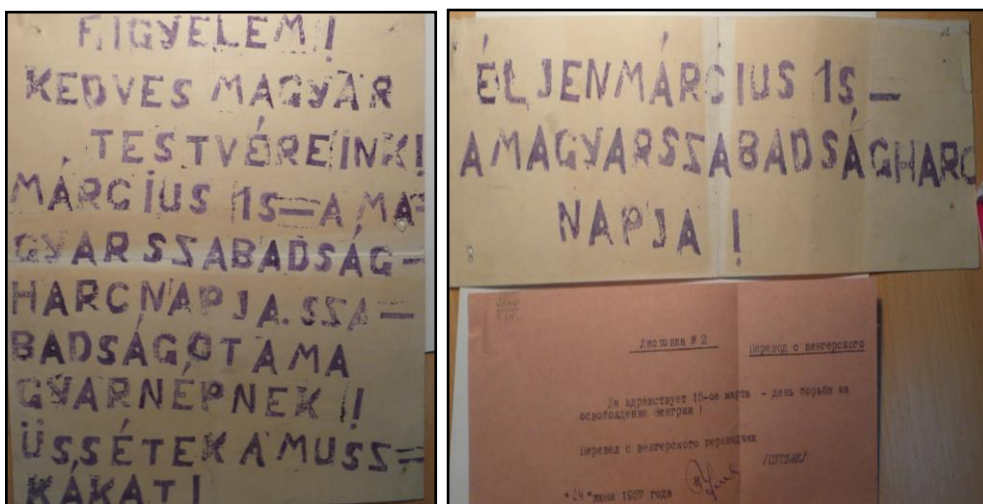 FIGYELEM!
KEDVES MAGYAR
TESTVÉREINK!
MÁRCIUS 15–A MA-
GYARSZABADSÁG-
HARCNAPJA.SZA-
BADSÁGOTAMA
GYARNÉPNEK!!
ÜSSÉTEK A MUSZ-
KÁKAT!
ÉLJEN MÁRCIUS 15–
A MAGYARSZABADSÁGHARC
NAPJA!
Листовка № 2 Перевод с венгерского
Да здравствует 15-ое марта - день борьбы за
освобождение Венгрии !
Перевел с венгерского переводчик
"24" июня 1957 года